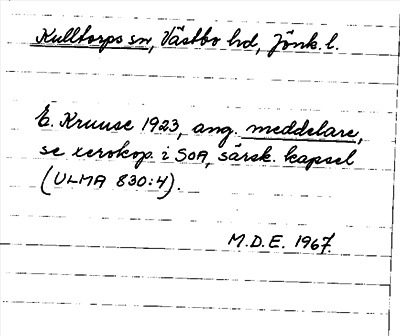 Kulltorps sn, Västbo hd, Jönk. l.
E. Kruuse 1923, ang. meddelare,
se xerokop. i SOA, särsk. kapsel
(ULMA 830:4).
M.D.E. 1967.